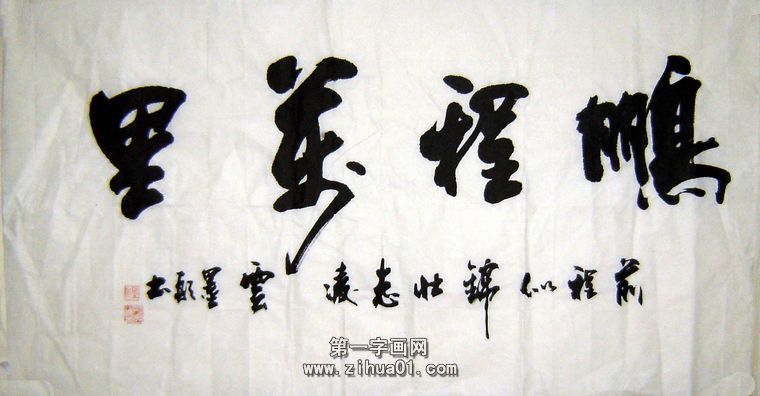 鵬程萬里
前程似錦壯志凌雲 墨顧书
第一字画网
www.zihua01.com